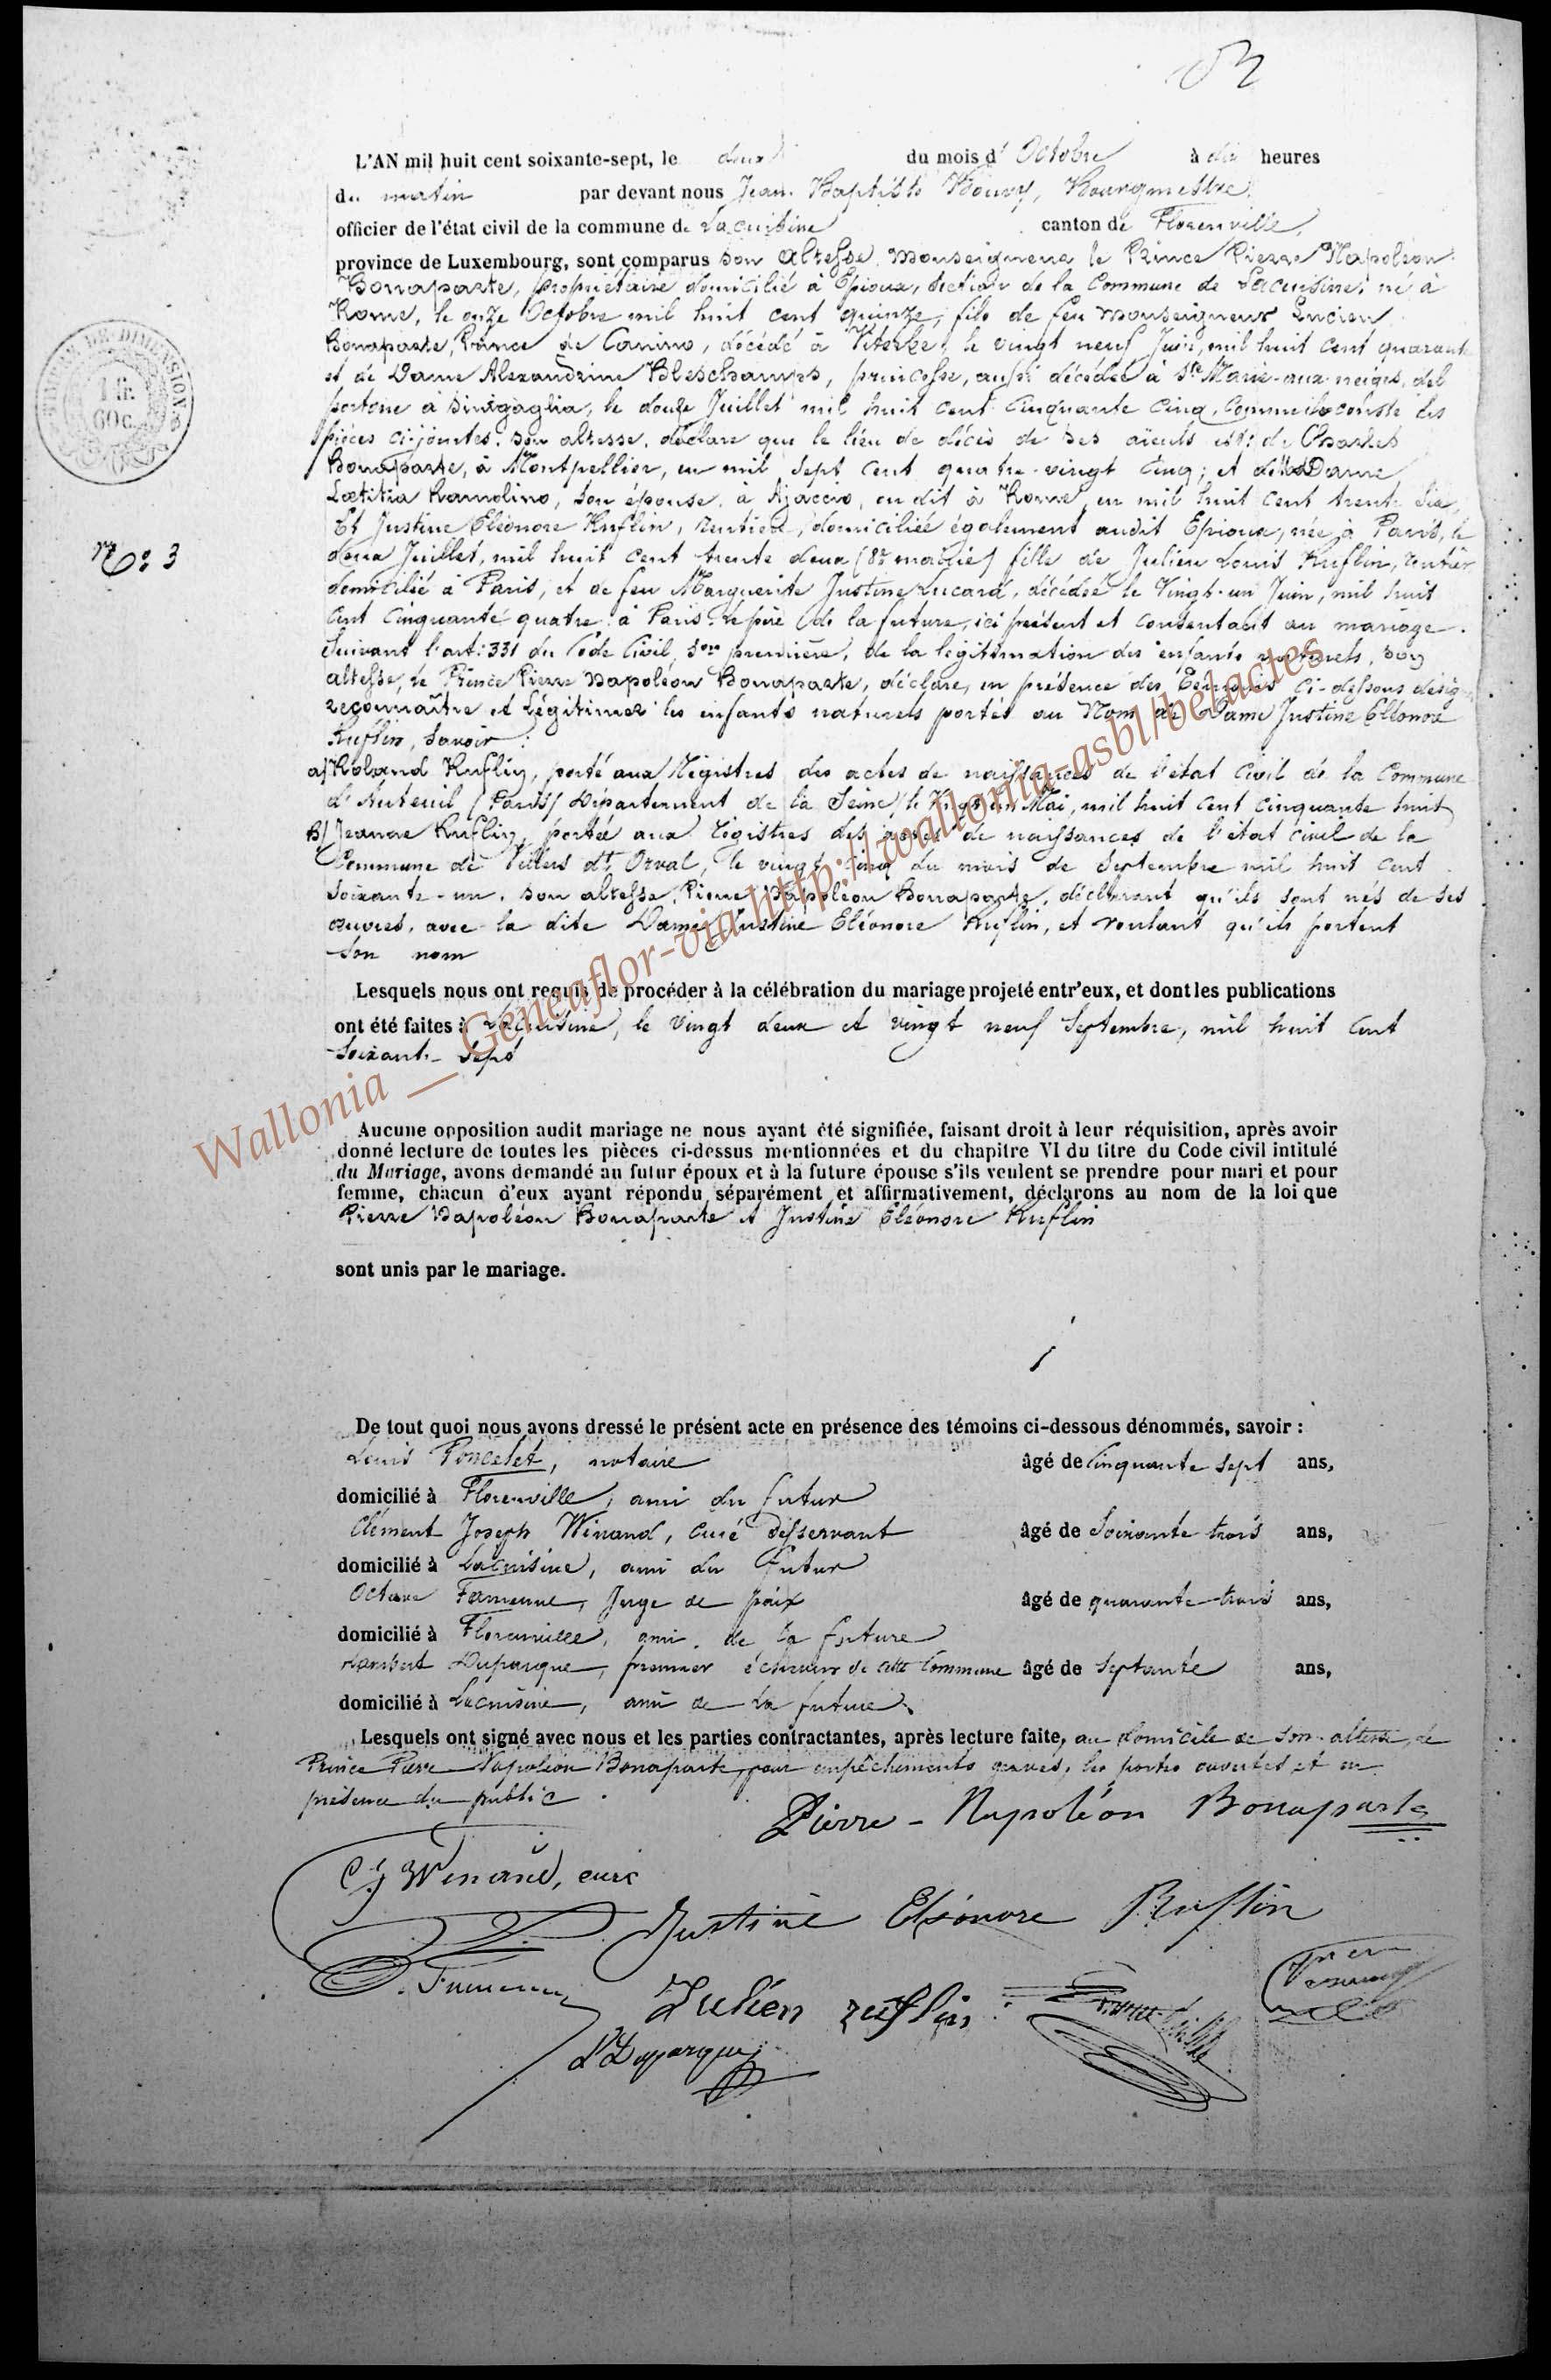 L'AN mil huit cent soixante-sept, le deux du mois d' Octobre à dix heures
du matin par devant nous Jean Baptiste Bouvy, Bourgmestre,
officier de l'état civil de la commune de Lacuisine canton de Florenville,
province de Luxembourg, sont comparus Son Altesse Monseigneur le Prince Pierre Napoléon
Bonaparte, propriétaire domicilié à Epioux, section de la Commune de Lacuisine, né à
Rome, le onze Octobre mil huit cent quinze, fils de feu Monseigneur Lucien
Bonaparte, Prince de Canino, décédé à Viterbe, le vingt neuf Juin, mil huit cent quarante
et de Dame Alexandrine Bleschamps, princesse, aussi décédée à Ste Marie-aux-neiges, del
portone à Sinigaglia, le douze Juillet mil huit cent cinquante cinq, comme il conste des
pièces ci-jointes. Son altesse, déclare que le lieu de décès de ses aïeuls est: de Charles
Bonaparte, à Montpellier, en mil sept cent quatre-vingt cinq; et de Dame
Lœtitia Ramolino, son épouse, à Ajaccio, ou dit à Rome, en mil huit cent trente six,
Et Justine Eléonore Ruflin, rentière, domiciliée également audit Epioux, née à Paris, le
deux Juillet, mil huit cent trente deux (8e mairie) fille de Julien Louis Ruflin, rentier
domicilié à Paris, et de feu Marguerite Justine Lucard, décédée le Vingt-un Juin, mil huit
cent cinquante quatre à Paris. Le père de la future, ici présent et consentant au mariage.
Suivant l'art: 331 du Code Civil, Son première, de la légitimation des enfants naturels, Son
altesse, le Prince Pierre Napoléon Bonaparte, déclare, en présence des Témoins ci-dessous désig
reconnaître et légitimer les enfants naturels portés au Nom de Dame Justine Elléonore
Ruflin, savoir:
a) Roland Ruflin, porté aux Régistres des actes de naissances de l'état Civil de la Commune
d'Auteuil (Paris) Département de la Seine, le Vingt un Mai, mil huit cent cinquante huit
B) Jeanne Ruflin, portée aux régistres des actes de naissances de l'état civil de la
Commune de Villers dt Orval, le vingt cinq du mois de Septembre mil huit cent
soixante-un. Son altesse, Pierre Napoléon Bonaparte, déclarant qu'ils sont nés de ses
œuvres, avec la dite Dame Justine Eléonore Ruflin, et voulant qu'ils portent
Son nom
N°: 3
Lesquels nous ont requis de procéder à la célébration du mariage projeté entr'eux, et dont les publications
ont été faites à Lacuisine, le Vingt deux et vingt neuf Septembre, mil huit cent
soixante-sept
Wallonia __ Généaflor-via http://wallonia-asbl/belactes
Aucune opposition audit mariage ne nous ayant été signifiée, faisant droit à leur réquisition, après avoir
donné lecture de toutes les pièces ci-dessus mentionnées et du chapitre VI du titre du Code civil intitulé
du Mariage, avons demandé au futur époux et à la future épouse s'ils veulent se prendre pour mari et pour
femme, chacun d'eux ayant répondu séparément et affirmativement, déclarons au nom de la loi que
Pierre Napoléon Bonaparte et Justine Eléonore Ruflin
sont unis par le mariage.
De tout quoi nous avons dressé le présent acte en présence des témoins ci-dessous dénommés, savoir :
Louis Poncelet, notaire âgé de Cinquante sept ans,
domicilié à Florenville, ami du futur
Clément Joseph Winand, curé desservant âgé de Soixante trois ans,
domicilié à Lacuisine, ami du futur
Octave Famenne, Juge de paix âgé de quarante-trois ans,
domicilié à Florenville, ami de la future
Lambert Duparque, premier échevin de cette Commune âgé de Septante ans,
domicilié à Lacuisine, ami de la future.
Lesquels ont signé avec nous et les parties contractantes, après lecture faite, au domicile de Son altesse, le
Prince Pierre Napoléon Bonaparte, pour empêchements graves, les portes ouvertes et en
présence du public.
Pierre-Napoléon Bonaparte
CJ Winand, curé
Justine Eléonore Ruflin
O. Famenne
Julien ruflin
L Duparque